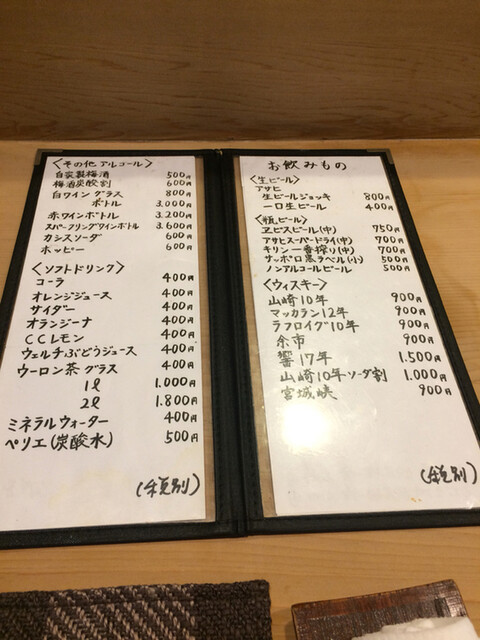 〈その他アルコール〉
自家製梅酒 500円
梅酒炭酸割 600円
白ワイングラス 800円
ボトル 3,000円
赤ワインボトル 3,200円
スパークリングワインボトル 3,600円
カシスソーダ 600円
ホッピー 600円
〈ソフトドリンク〉
コーラ 400円
オレンジジュース 400円
サイダー 400円
オランジーナ 400円
CCレモン 400円
ウェルチぶどうジュース 400円
ウーロン茶グラス 400円
1ℓ 1.000円
2ℓ 1.800円
ミネラルウォーター 400円
ペリエ(炭酸水) 500円
(税別)
お飲みもの
〈生ビール〉
アサヒ
生ビールジョッキ 800円
一口生ビール 400円
〈瓶ビール〉
ヱビスビール(中) 750円
アサヒスーパードライ(中) 700円
キリン一番搾り(中) 700円
サッポロ黒ラベル(小) 500円
ノンアルコールビール 500円
〈ウィスキー〉
山崎10年 900円
マッカラン12年 900円
ラフロイグ10年 900円
余市 900円
響17年 1.500円
山崎10年ソーダ割 1.000円
宮城峡 900円
(税別)